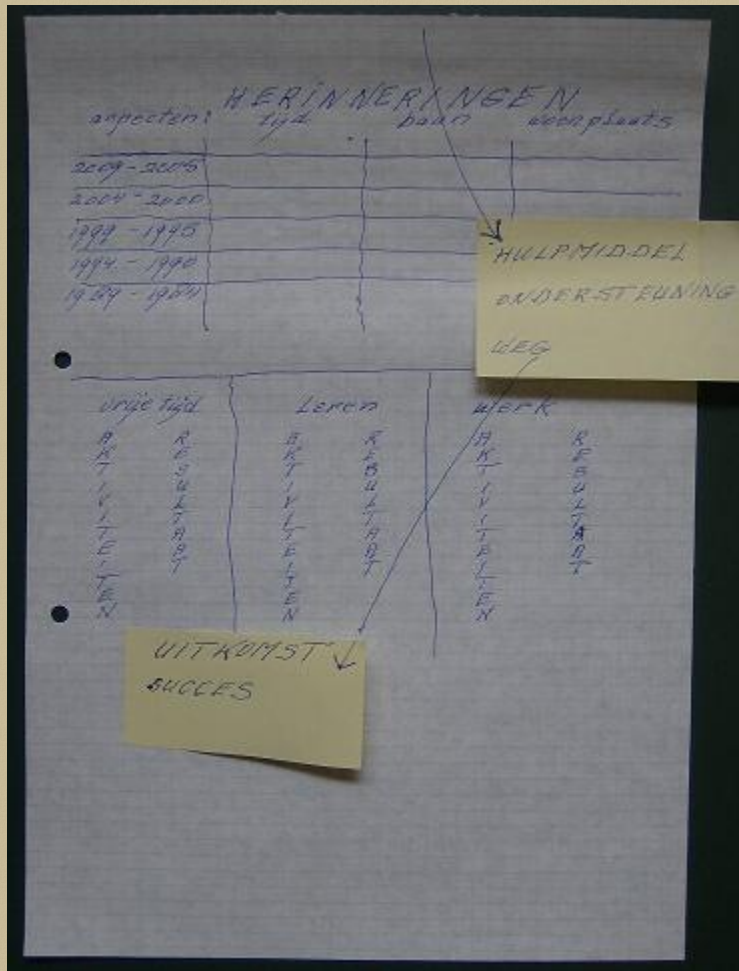 HERINNERINGEN
aspecten: tijd baan woonplaats
2009-2005
2004-2000
1999-1995
1994-1990
1989-1984
HULPMIDDEL
ONDERSTEUNING
WEG
vrije tijd Leren Werk
AKTIVITEITEN RESULTAAT AKTIVITEITEN RESULTAAT AKTIVITEITEN RESULTAAT
UITKOMST
SUCCES